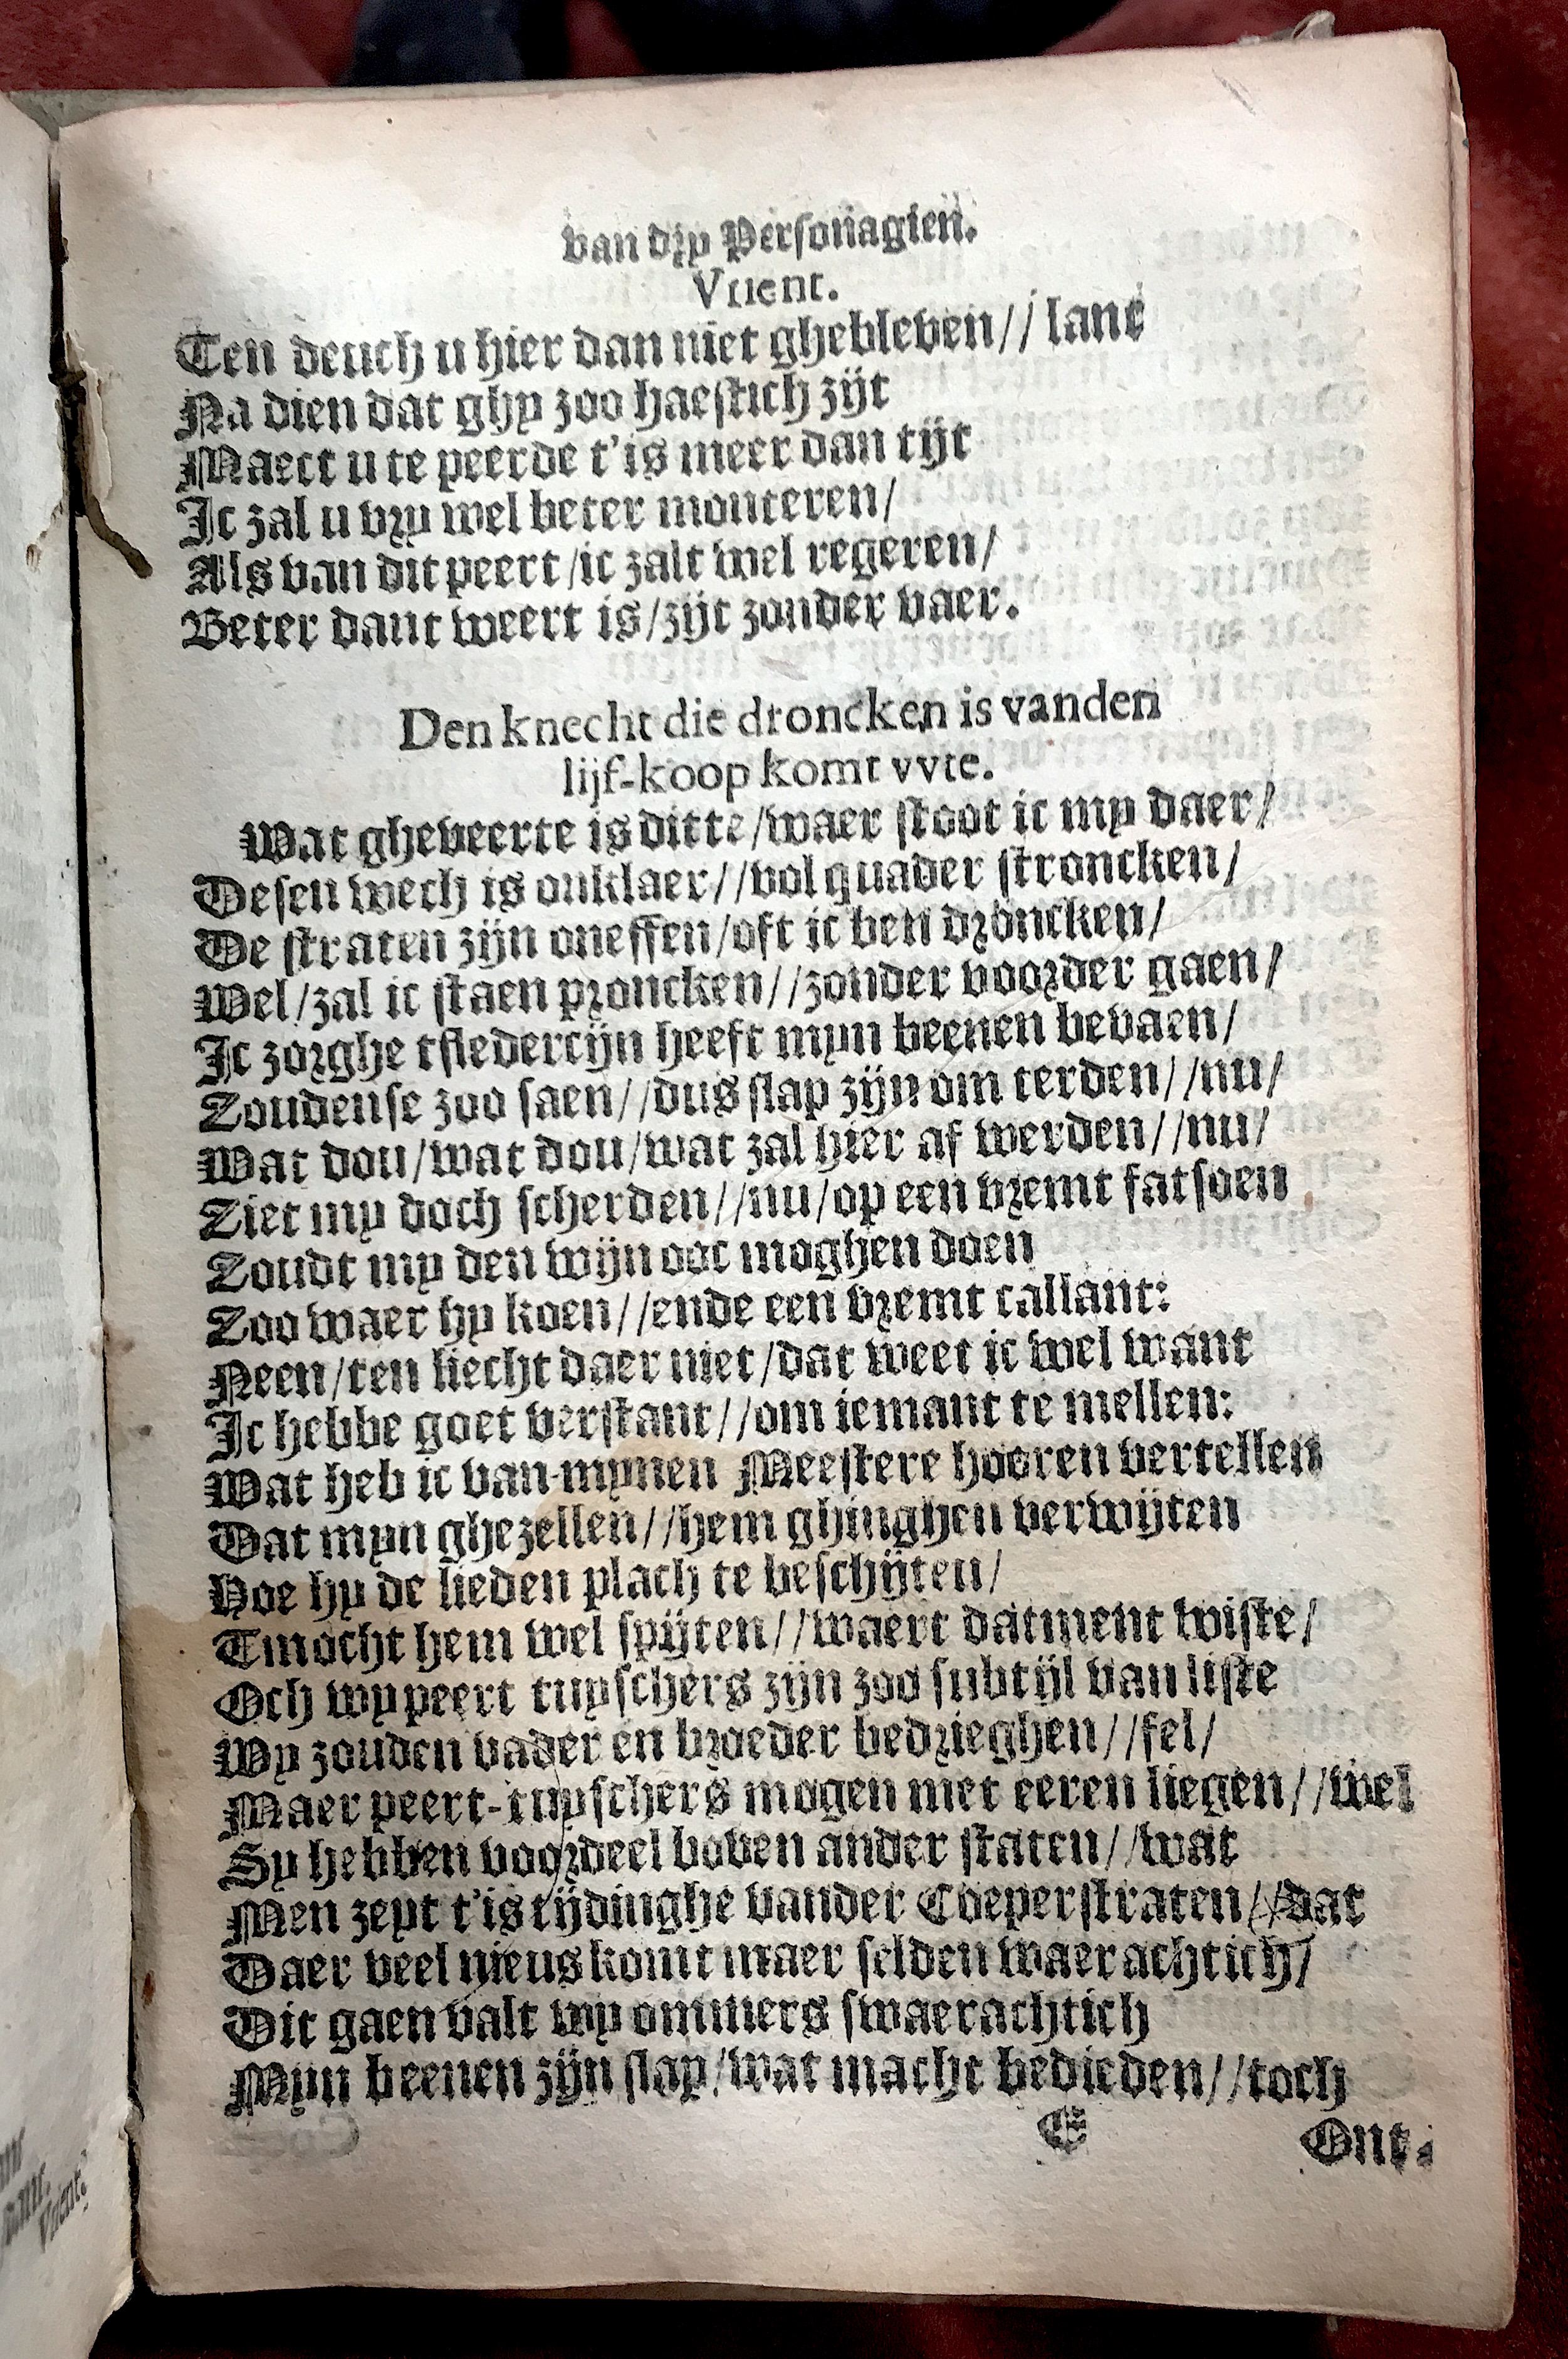 van dry Personagien.
Vrient.
Ten deuch u hier dan niet ghebleven// lanc
Na dien dat ghy zoo haestich zijt
Maect u te peerde t'is meer dan tijt
Ic zal u vry wel beter monteren/
Als van dit peert/ic zalt wel regeren/
Beter dant weert is/zijt zonder vaer.
Den knecht die droncken is vanden
lijf-koop komt vvte.
Wat gheveerte is ditte/waer stoot ic my daer/
Desen wech is onklaer//vol quader stroncken/
De straten zijn oneffen/oft ic ben droncken/
Wel/zal ic staen proncken//zonder voorder gaen/
Ic zorghe tfledercijn heeft myn beenen bevaen/
Zoudense zoo saen//dus slap zijn om terden//nu/
Wat dou/wat dou/wat zal hier af werden//nu/
Ziet my doch scherden//nu/op een vremt fatsoen
Zoudt my den wijn ooc moghen doen
Zoo waer hy koen//ende een vremt callant:
Neen/ten liecht daer niet/dat weet ic wel want
Ic hebbe goet verstant//om iemant te mellen:
Wat heb ic van mynen Meestere hooren vertellen
Dat myn ghezellen//hem ghinghen verwijten
Hoe hy de lieden plach te beschijten/
Tmocht hem wel spijten//waert datment wiste/
Och wy peert tuyschers zijn zoo subtijl van liste
Wy zouden vader en broeder bedrieghen//fel/
Maer peert-tuyschers mogen met eeren liegen//wel
Sy hebben voordeel boven ander staten//wat
Men zeyt t'is tijdinghe vander Coeperstraten//dat
Daer veel nieus komt maer selden waerachtich/
Dit gaen valt my ommers swaerachtich
Myn beenen zijn slap/wat macht bedieden//toch
E Ont-
Vrient.